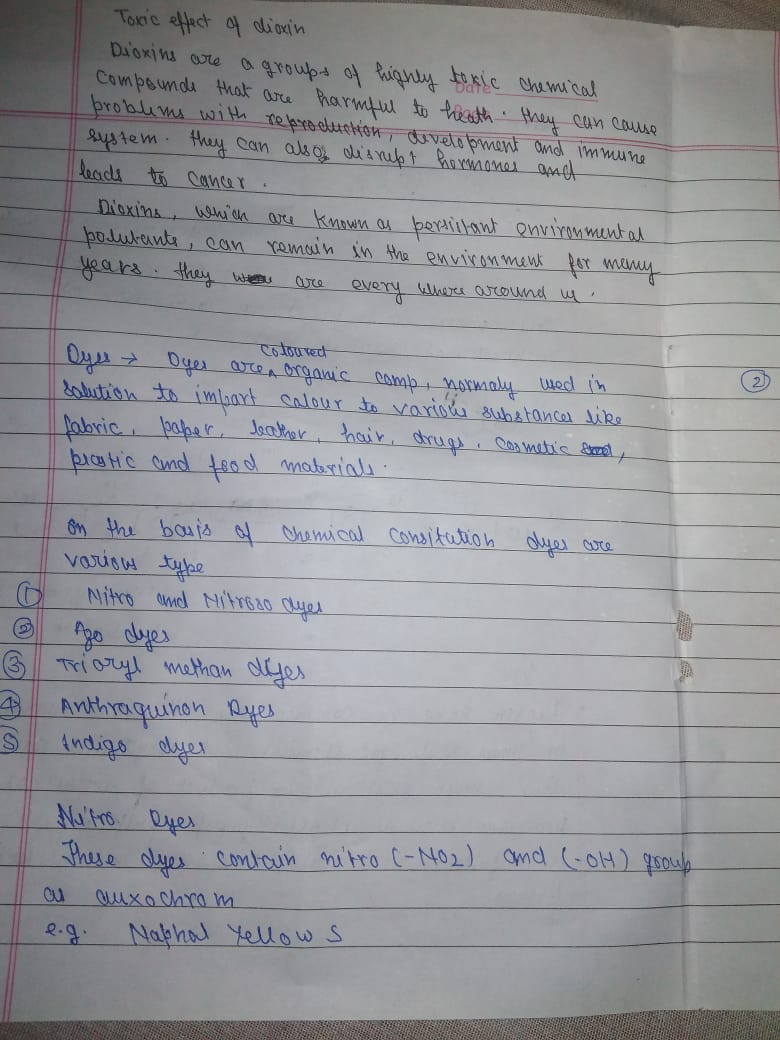 Toxic effect of dioxin
Dioxins are a groups of highly toxic chemical
compounds that are harmful to heath. they can cause
problems with reproduction, development and immune
system. they can also disrupt hormones and
leads to cancer.
Dioxins, which are known as persistant environmental
polutants, can remain in the environment for many
years. they are every where around us.
Dyes → Dyes are coloured organic comp, normaly used in
solution to impart calour to various substances like
fabric, paper, leather, hair, drugs, cosmetic,
plastic and food materials.
②
on the basis of chemical consitation dyes are
various type
① Nitro and Nitroso dyes
② Azo dyes
③ Triaryl methan dyes
④ Anthraquinon Dyes
⑤ Indigo dyes
Nitro Dyes
These dyes contain nitro (-NO2) and (-OH) group
as auxochrom
e.g. Naphal Yellow S